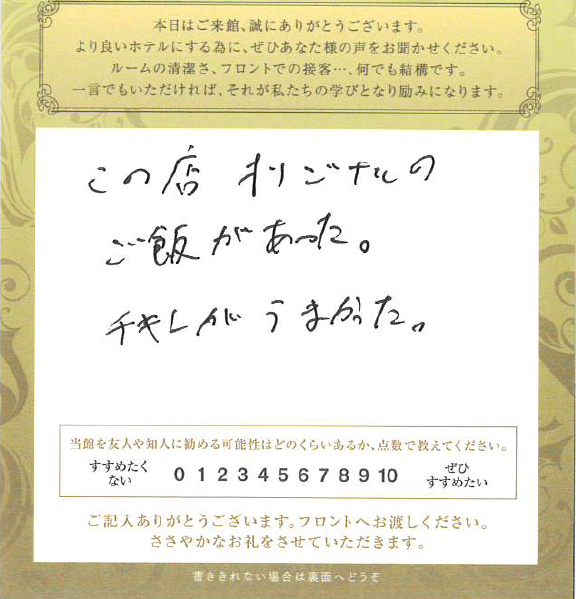 本日はご来館、誠にありがとうございます。
より良いホテルにする為に、ぜひあなた様の声をお聞かせください。
ルームの清潔さ、フロントでの接客…、何でも結構です。
一言でもいただければ、それが私たちの学びとなり励みになります。
この店 オリジナルの
ご飯があった。
チキレがうまかった。
当館を友人や知人に勧める可能性はどのくらいあるか、点数で教えてください。
すすめたくない 0 1 2 3 4 5 6 7 8 9 10 ぜひすすめたい
ご記入ありがとうございます。フロントへお渡しください。
ささやかなお礼をさせていただきます。
書ききれない場合は裏面へどうぞ